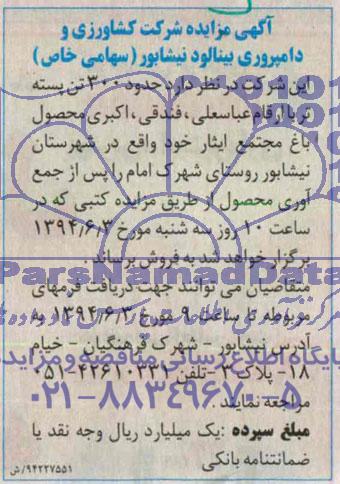 آگهی مزایده شرکت کشاورزی و
دامپروری بینالود نیشابور (سهامی خاص)
این شرکت در نظر دارد حدود ۳۰۰ تن پسته
تر با ارقام عباسعلی، فندقی، اکبری محصول
باغ مجتمع ایثار خود واقع در شهرستان
نیشابور روستای شهرک امام را پس از جمع
آوری محصول از طریق مزایده کتبی که در
ساعت ۱۰ روز سه شنبه مورخ ۱۳۹۴/۶/۳
برگزار خواهد شد به فروش برساند.
ParsNamadData
متقاضیان می توانند جهت دریافت فرمهای
مربوطه تا ساعت ۹ مورخ ۱۳۹۴/۶/۳ به
آدرس نیشابور - شهرک فرهنگیان - خیام
پایگاه اطلاع رسانی مناقصه و مزایده
۱۸- پلاک ۳ -تلفن ۴۲۶۱۰۳۳۱-۰۵۱
۰۲۱-۸۸۳۴۹۶۷۰-۵
مراجعه نمایند.
مبلغ سپرده :یک میلیارد ریال وجه نقد یا
ضمانتنامه بانکی
۹۴۲۲۷۵۵۱/ش